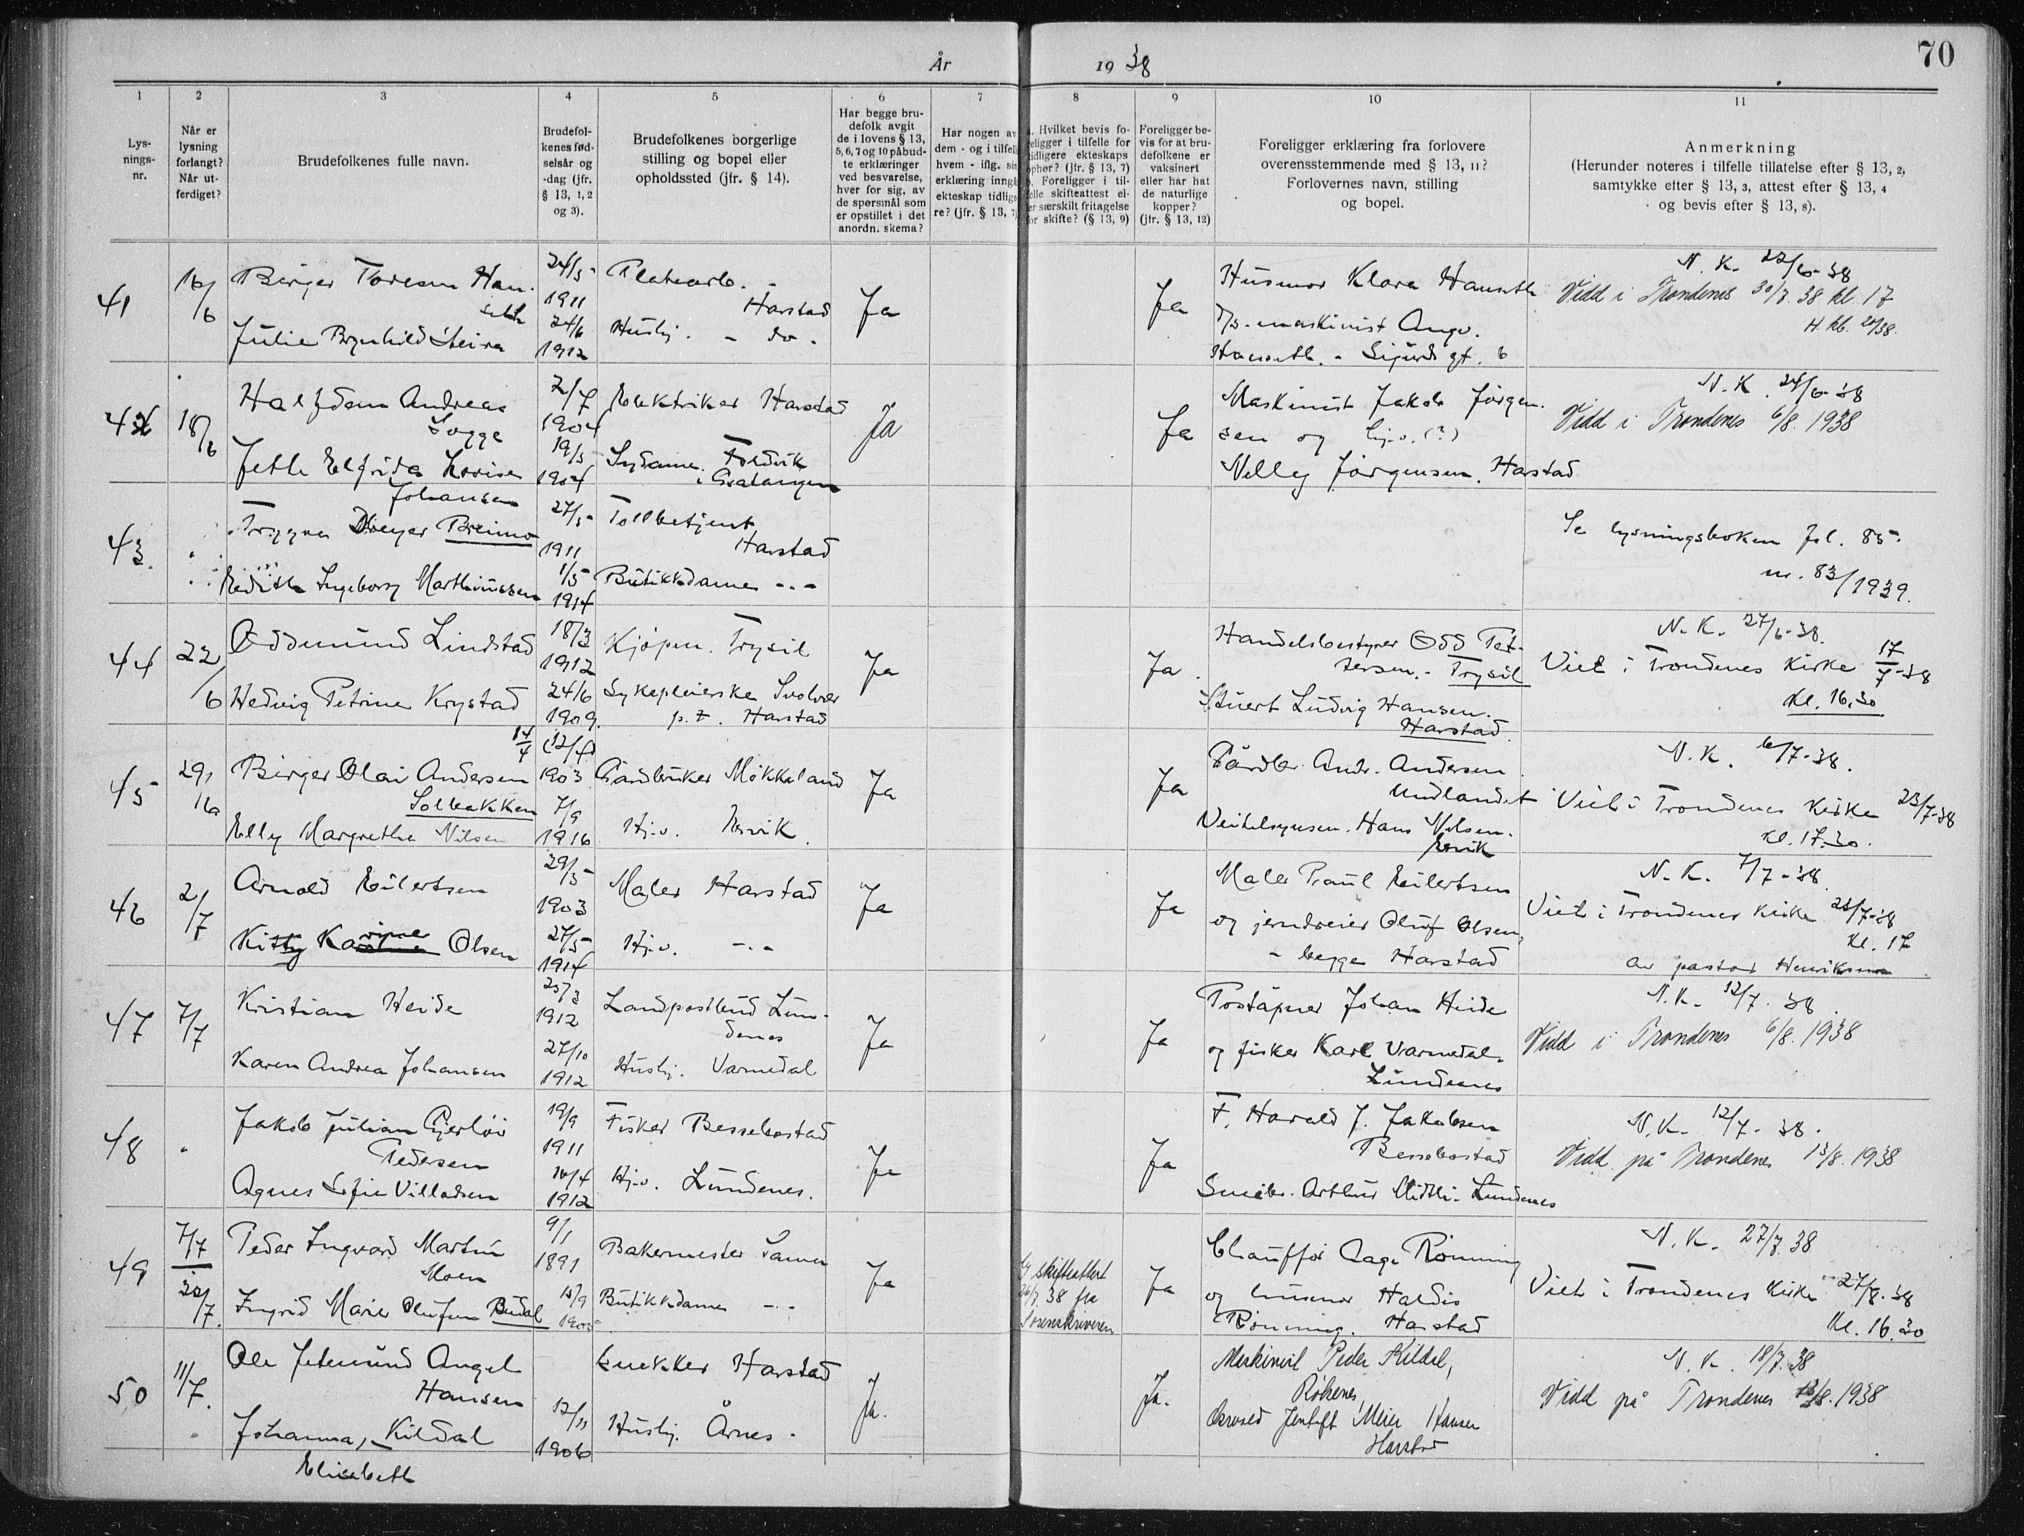 70
År 1938
1 2 3 4 5 6 7 8 9 10 11
Lys-
nings-
nr.
Når er
lysning
forlangt?
Når ut-
ferdiget?
Brudefolkenes fulle navn.
Brudefol-
kenes fød-
selsår og
-dag (jfr.
§ 13, 1, 2
og 3).
Brudefolkenes borgerlige
stilling og bopel eller
opholdssted (jfr. § 14).
Har begge bru-
defolk avgit
de i lovens § 13,
5, 6, 7 og 10 påbud-
te erklæringer
ved besvarelse,
hver for sig, av
de spørsmål som
er opstillet i det
anordn. skema?
Har nogen av
dem - og i tilfelle
hvem - iflg. sin
erklæring inngått
ekteskap tidlige-
re? (jfr. § 13, 7)
Hvilket bevis fo-
religger i tilfelle for
tidligere ekteskaps
ophør? (jfr. § 13, 7)
Foreligger i til-
felle skifteattest el-
ler særskilt fritagelse
for skifte? (§ 13, 9)
Foreligger be-
vis for at bru-
defolkene er
vaksinert
eller har hat
de naturlige
kopper?
(jfr. § 13, 12)
Foreligger erklæring fra forlovere
overensstemmende med § 13, 11?
Forlovernes navn, stilling
og bopel.
Anmerkning
(Herunder noteres i tilfelle tillatelse efter § 13, 2,
samtykke efter § 13, 3, attest efter § 13, 4
og bevis efter § 13, 8).
41 16/6 Birger Toresen Han-
seth
24/5
1911
Platearb. -
Harstad
Julie Brynhild Steira
24/6
1912
Huslj. - do -
Ja
Ja
Husmor Klara Hanseth
D/s-maskinist Angv.
Hanseth. - Sigurds gt. 6
N. K. 22/6-38
Vidd i Trondenes 30/7. 38 kl. 17
42 18/6 Halfdan Andreas
Sogge
2/7
1904
Elektriker Harstad
Jeth Elfrida Lovise
Johansen
19/5
1904
Sydame. Foldvik
i Gratangen
Ja
Ja
Maskinist Jakob Jørgen-
sen og hj.v. (?)
Nelly Jørgensen. Harstad
N. K. 24/6-38
Vidd i Trondenes 6/8. 1938
43. Trygve Dreyer Breimo
27/5
1911
Tollbetjent
Harstad
Edith Ingeborg Marthinussen
1/5
1914
Butikkdame - - -
Se lysningsboken fol. 85.
nr. 83/1939.
44 22/6 Oddmund Lindstad
18/3
1912
Kjøpm. Trysil
Hedvig Petrine Krystad
24/6
1909.
Sykepleierske Svolvær
p.t. Harstad
Ja
Ja.
Handelsbestyrer Odd Pet-
tersen. - Trysil
Stuert Ludvig Hansen.
Harstad.
N. K. 27/6-38.
Viet i Trondenes Kirke 17/7-38
Kl. 16,30
45 29/6 Birger Olai Andersen
Solbakken
14/4 (12/4)
1903
Gårdbruker Møkkeland
Elly Margrethe Nilsen
7/9
1916
Hj.v. Ervik.
Ja
Ja
Gårdbr. Andr. Andersen
Undlandet
Hans Nilsen.
Ervik
N. K. 6/7-38.
Viet i Trondenes Kirke 23/7-38
kl. 17.30.
46 2/7 Arnold Eilertsen
29/5
1903
Maler Harstad
Kitty Karine Olsen
27/5
1914
Hj.v. - - -
Ja
Ja
Maler Paul Eilertsen
og jerndreier Oluf Olsen,
- begge Harstad
N. K. 7/7-38.
Viet i Trondenes Kirke 23/7-38
Kl. 17
av pastor Henriksen
47 7/7 Kristian Heide
1912
Landpostbud Lun-
denes
Karen Andrea Johansen
27/10
1912
Huslj. Varmedal
Ja
Ja
Poståpner Johan Heide
og fisker Karl Varmedal-
Lundenes
N. K. 12/7. 38
Vidd i Trondenes 6/8. 1938
48 " Jakob Julian Gjerløv
Pedersen
19/9
1911
Fisker Bessebostad
Agnes Sofie Villadsen
16/4
1912
Hj.v. Lundenes.
Ja
Ja
F. Harald J. Jakobsen
Bessebostad
Småbr. Arthur Midtli - Lundenes
N. K. 12/7- 38.
Vidd på Trondenes 13/8. 1938
49 7/7
Peder Ingvard Martin
Moen
9/1
1891
Bakermester Samen
Ingrid Marie Olufine Budal
15/9
Butikkdame - - -
Ja
skifteattest
38 fra
Sorenskriveren
Ja
Chauffør Aage Rønning
og husmor Haldis
Rønning. Harstad
N. K. 27/7. 38
Viet i Trondenes Kirke 27/8.38
Kl. 16.30
50 11/7. Ole Jetmund Angel
Hansen
Snekker Harstad
Johanna, Kildal
Elisabeth
12/11
1906
Huslj. Årnes.
Ja.
Ja.
Maskinist Peder Kildal,
Røkenes
Osvald Jentoft Meier Hansen
Harstad
N. K. 18/7. 38
Vidd på Trondenes 13/8. 1938